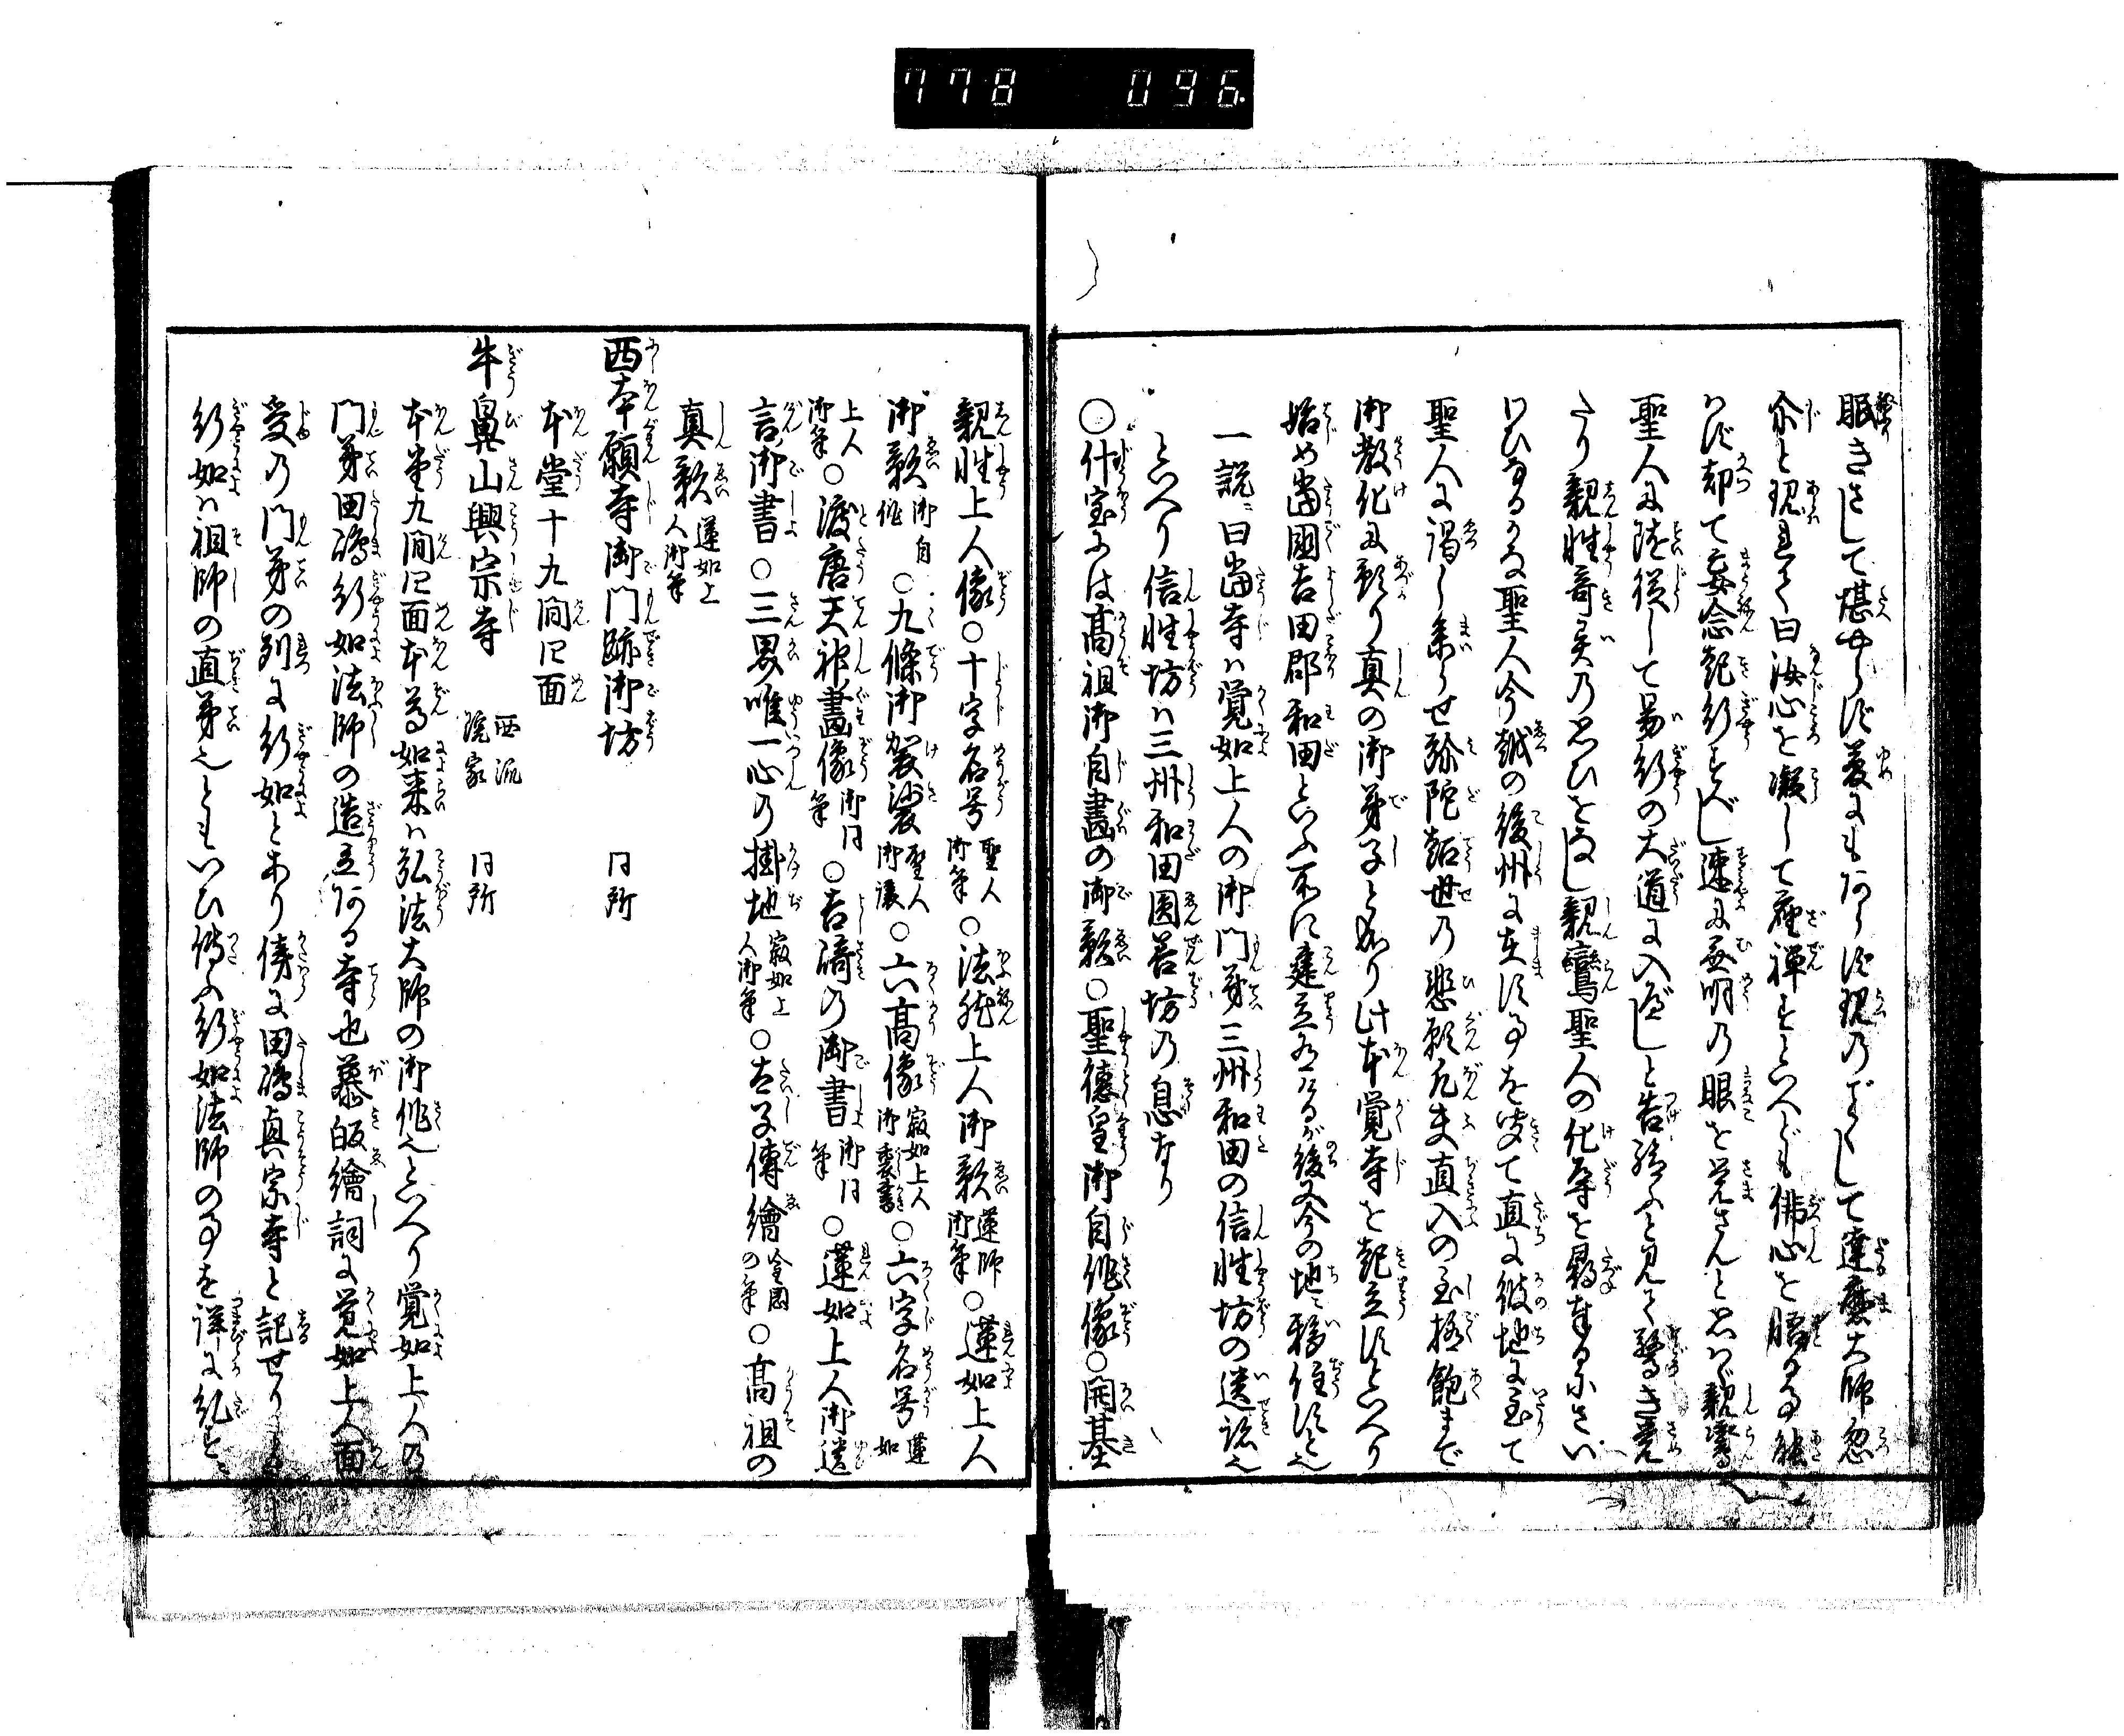 778 096.
眠きざして堪ゆらず夢にもあらず現のごとくして達磨大師忽
尓と現れて曰汝心を凝して座禅すといへども佛心を悟る事能
はず却て妄念起行すべし速に無明の眼を覚さんと思はゞ親鸞
聖人に随従して易行の大道に入べしと告給ふと見て驚き覚
たり親性奇異の思ひをなし親鸞聖人の化導を尋奉るにさい
はひなるかな聖人今越の後州に在す事を聞て直に彼地に至て
聖人に謁し奉らせ弥陀超世の悲願凡夫直入の至極飽まで
御教化に預り真の御弟子となり此本覚寺を起立すといへり
始め當國吉田郡和田といふ所に建立有けるが後又今の地に移住すと也
一説ニ曰當寺ハ覚如上人の御門弟三州和田の信性坊の遺跡也
といへり信性坊ハ三州和田圓善坊の息なり
○什宝には髙祖御自畵の御影○聖德皇御自作像○開基
親性上人像○十字名号聖人御筆○法然上人御影蓮師御筆○蓮如上人
御影御自作○九條御袈裟聖人御譲○六髙像寂如上人御裏書○六字名号蓮如
上人御筆○渡唐天神畵像御同筆○吉﨑の御書御同筆○蓮如上人御遺
言御書○三界唯一心の掛地寂如上人御筆○太子傳繪金岡の筆○髙祖の
真影蓮如上人御筆
西本願寺御門跡御坊 同所
本堂十九間四面
牛鼻山興宗寺 西派院家 同所
本堂九間四面本尊如来ハ弘法大師の御作也といへり覚如上人の
門弟田嶋行如法師の造立ある寺也慕皈繪詞に覚如上人面
受の門弟の列に行如とあり傍に田嶋真宗寺と記せり
行如ハ祖師の直弟也ともいひ傳ふ行如法師の事を詳に紀す